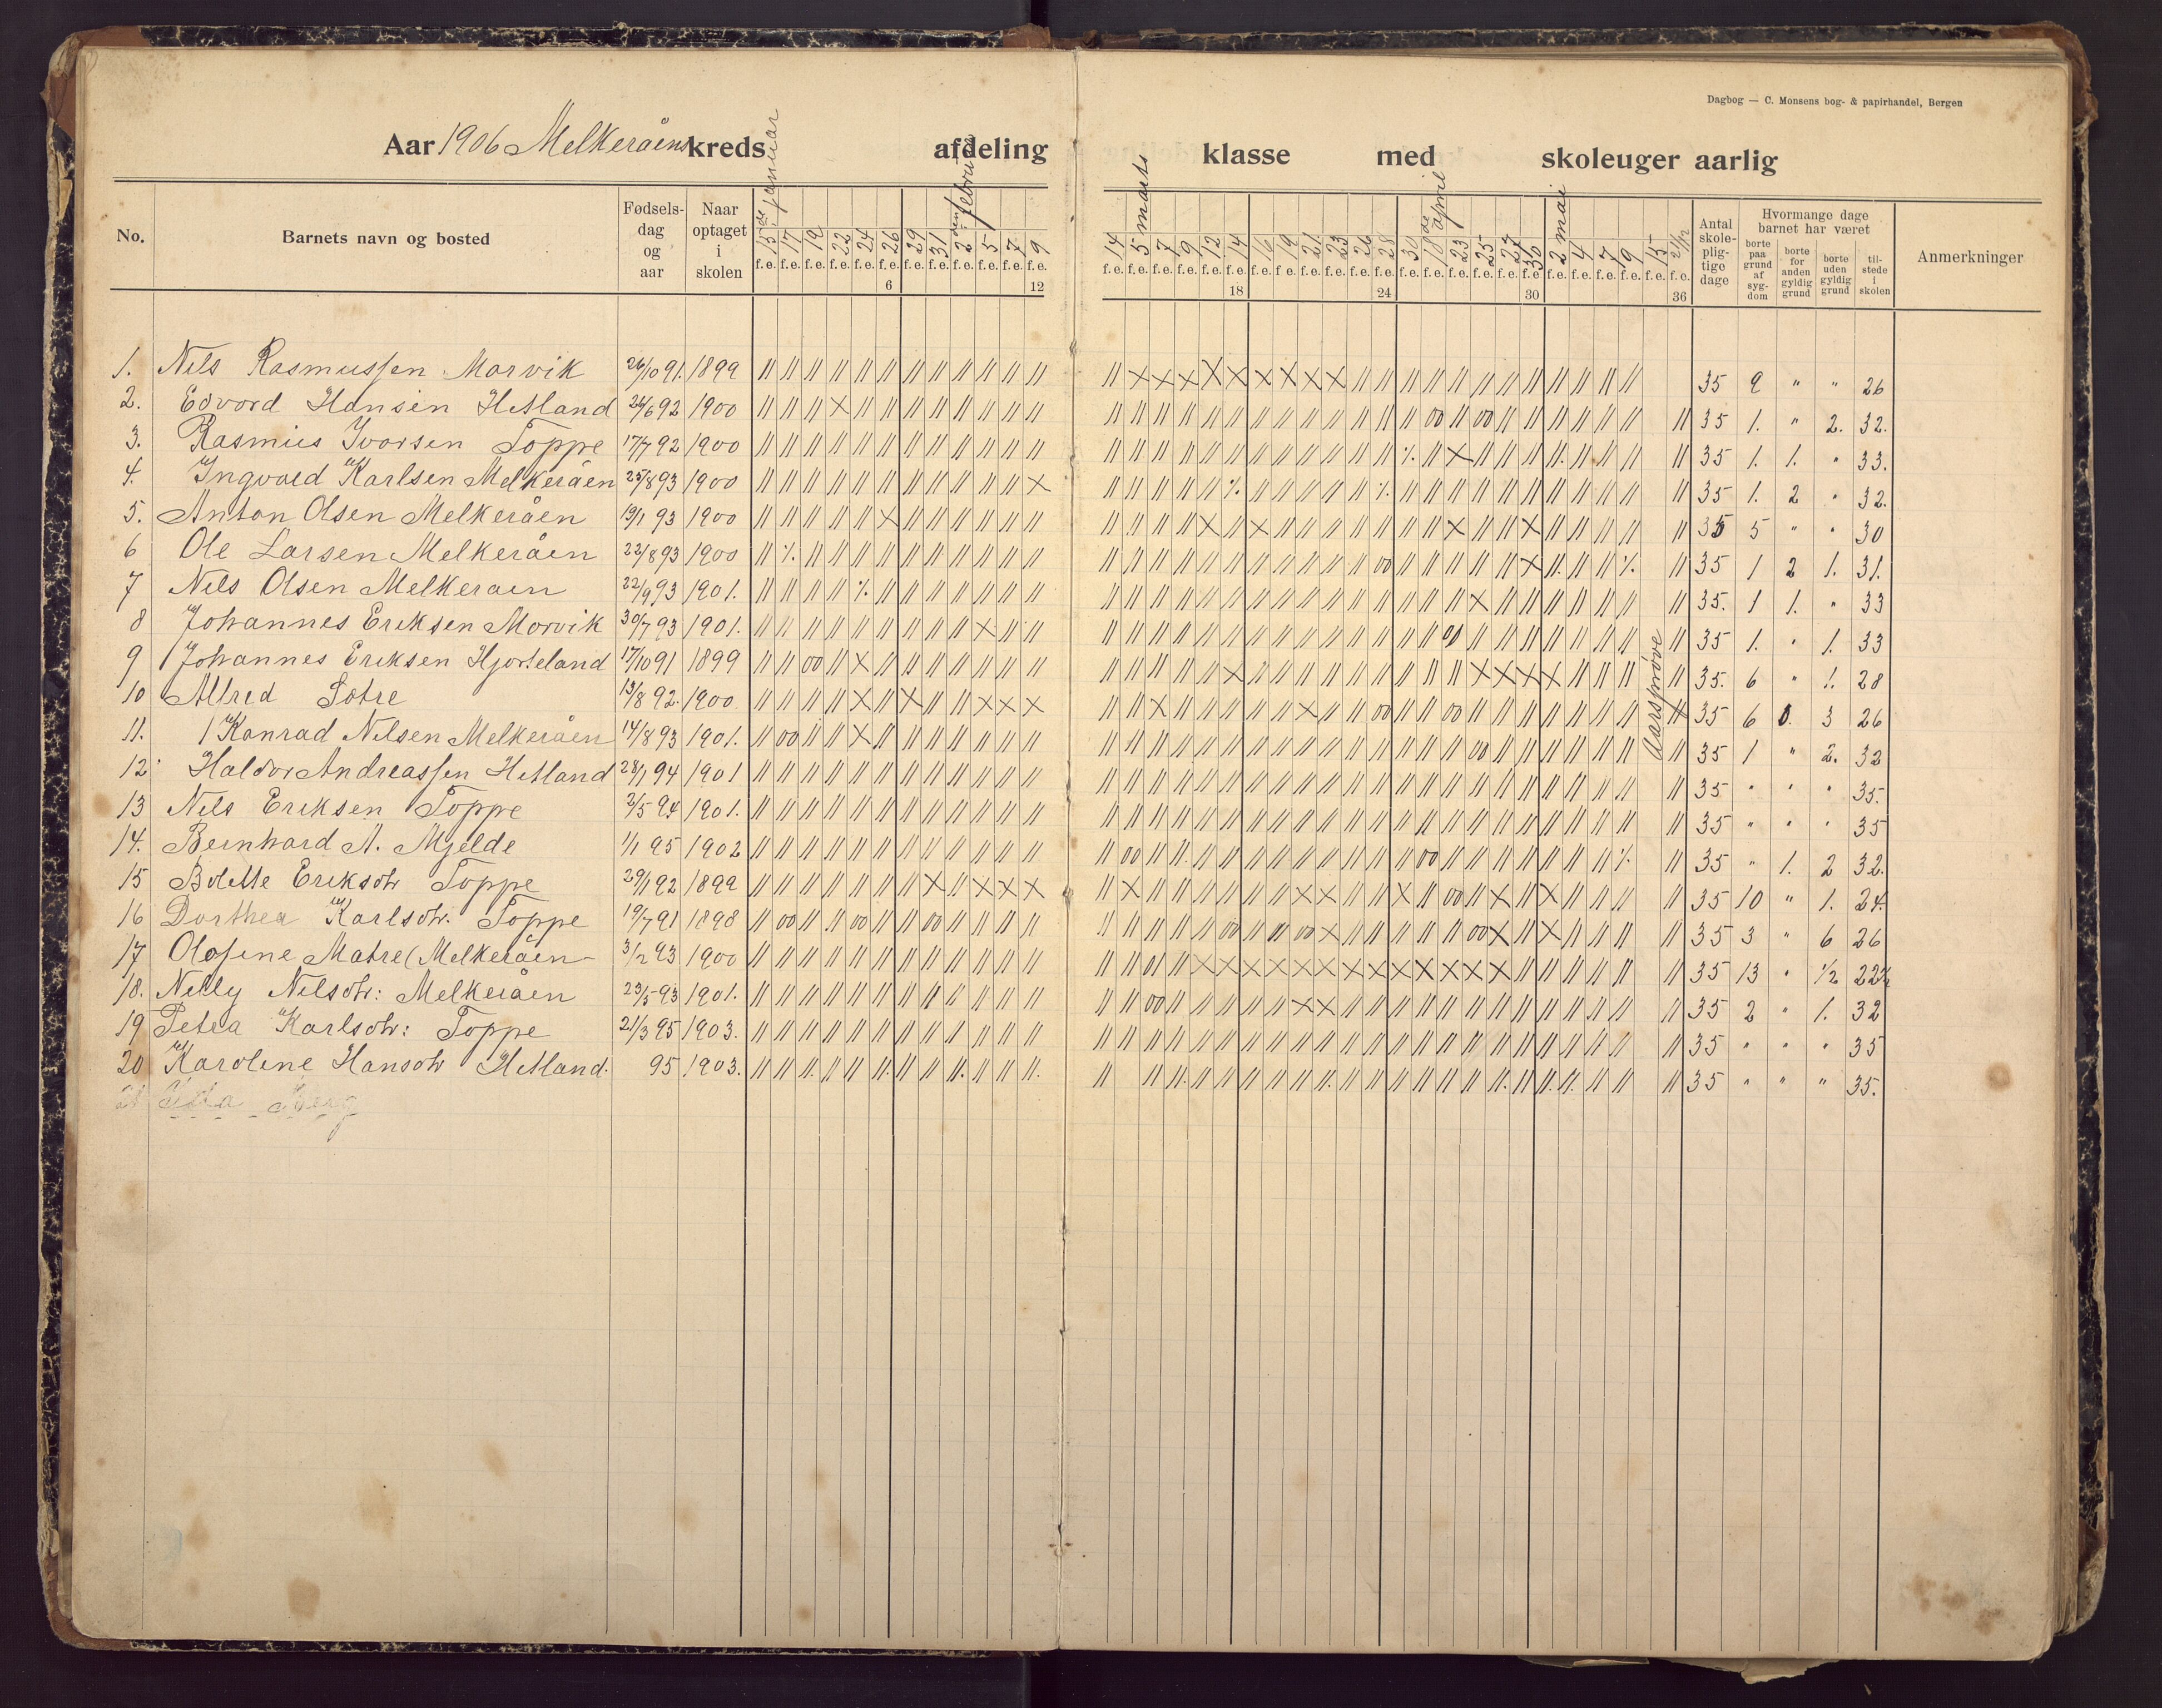 Dagbog — C. Monsens bog- & papirhandel, Bergen
Aar 1906 Melkeråens kreds afdeling klasse med skoleuger aarlig
15de januar 2den februar 5 marts 18de april 2 mai
No. Barnets navn og bosted Fødsels-dag og aar Naar optaget i skolen Antal skole-plig-tige dage Hvormange dage barnet har været Anmerkninger
borte paa grund af syg-dom borte for anden gyldig grund borte uden gyldig grund til-stede i skolen
15 17 19 22 24 26 29 31 2 5 7 9 14 5 7 9 12 14 16 19 21 23 26 28 30 18 23 25 27 30 2 4 7 9 15
f.e. f.e. f.e. f.e. f.e. f.e. f.e. f.e. f.e. f.e. f.e. f.e. f.e. f.e. f.e. f.e. f.e. f.e. f.e. f.e. f.e. f.e. f.e. f.e. f.e. f.e. f.e. f.e. f.e. f.e. f.e. f.e. f.e. f.e. f.e. f.e.
6 12 18 24 30 36
Aarsprøve
1. Nils Rasmussen Morvik 26/10 91. 1899 35 9 " " 26
2. Edvard Hansen Hetland 24/6 92 1900 35 1. " 2. 32.
3. Rasmus Ivarsen Toppe 17/7 92 1900 35 1. 1. " 33.
4. Ingvald Karlsen Melkeråen 25/8 93 1900 35 1. 2 " 32.
5. Anton Olsen Melkeråen 19/1 93 1900 35 5 " " 30
6 Ole Larsen Melkeråen 22/8 93 1900 35 1 2 1. 31.
7 Nils Olsen Melkeraen 22/9 93 1901. 35. 1 1. " 33
8 Johannes Eriksen Morvik 30/7 93 1901. 35 1. " 1. 33
9 Johannes Eriksen Hjorteland 17/10 91 1899 35. 6 " 1. 28
10 Alfred Totre 13/8 92. 1900 35 6 0. 3 26
11. Konrad Nilsen Melkeråen 14/8 93 1901. 35 1 " 2. 32
12 Haldor Andreassen Hetland 28/1 94 1901 35 " " " 35.
13 Nils Eriksen Toppe 2/5 94 1901. 35 " " " 35
14. Bernhard A. Mjelde 1/1 95 1902 35 " 1. 2 32.
15 Bolette Eriksdtr Toppe 29/1 92 1899 35 10 " 1. 24.
16 Dorthea Karlsdtr. Toppe 19/7 91 1898 35 3 " 6 26
17 Olofine Matre (Melkeråen- 3/2 93. 1900 35 13 " 1/2 22½
18. Nelly Nilsdtr: Melkeråen 23/5 93 1901. 35 2 " 1. 32
19 Petra Karlsdtr: Toppe 21/3 95 1903. 35 " " " 35
20 Karoline Hansdtr Hetland. 95 1903. 35 " " " 35.